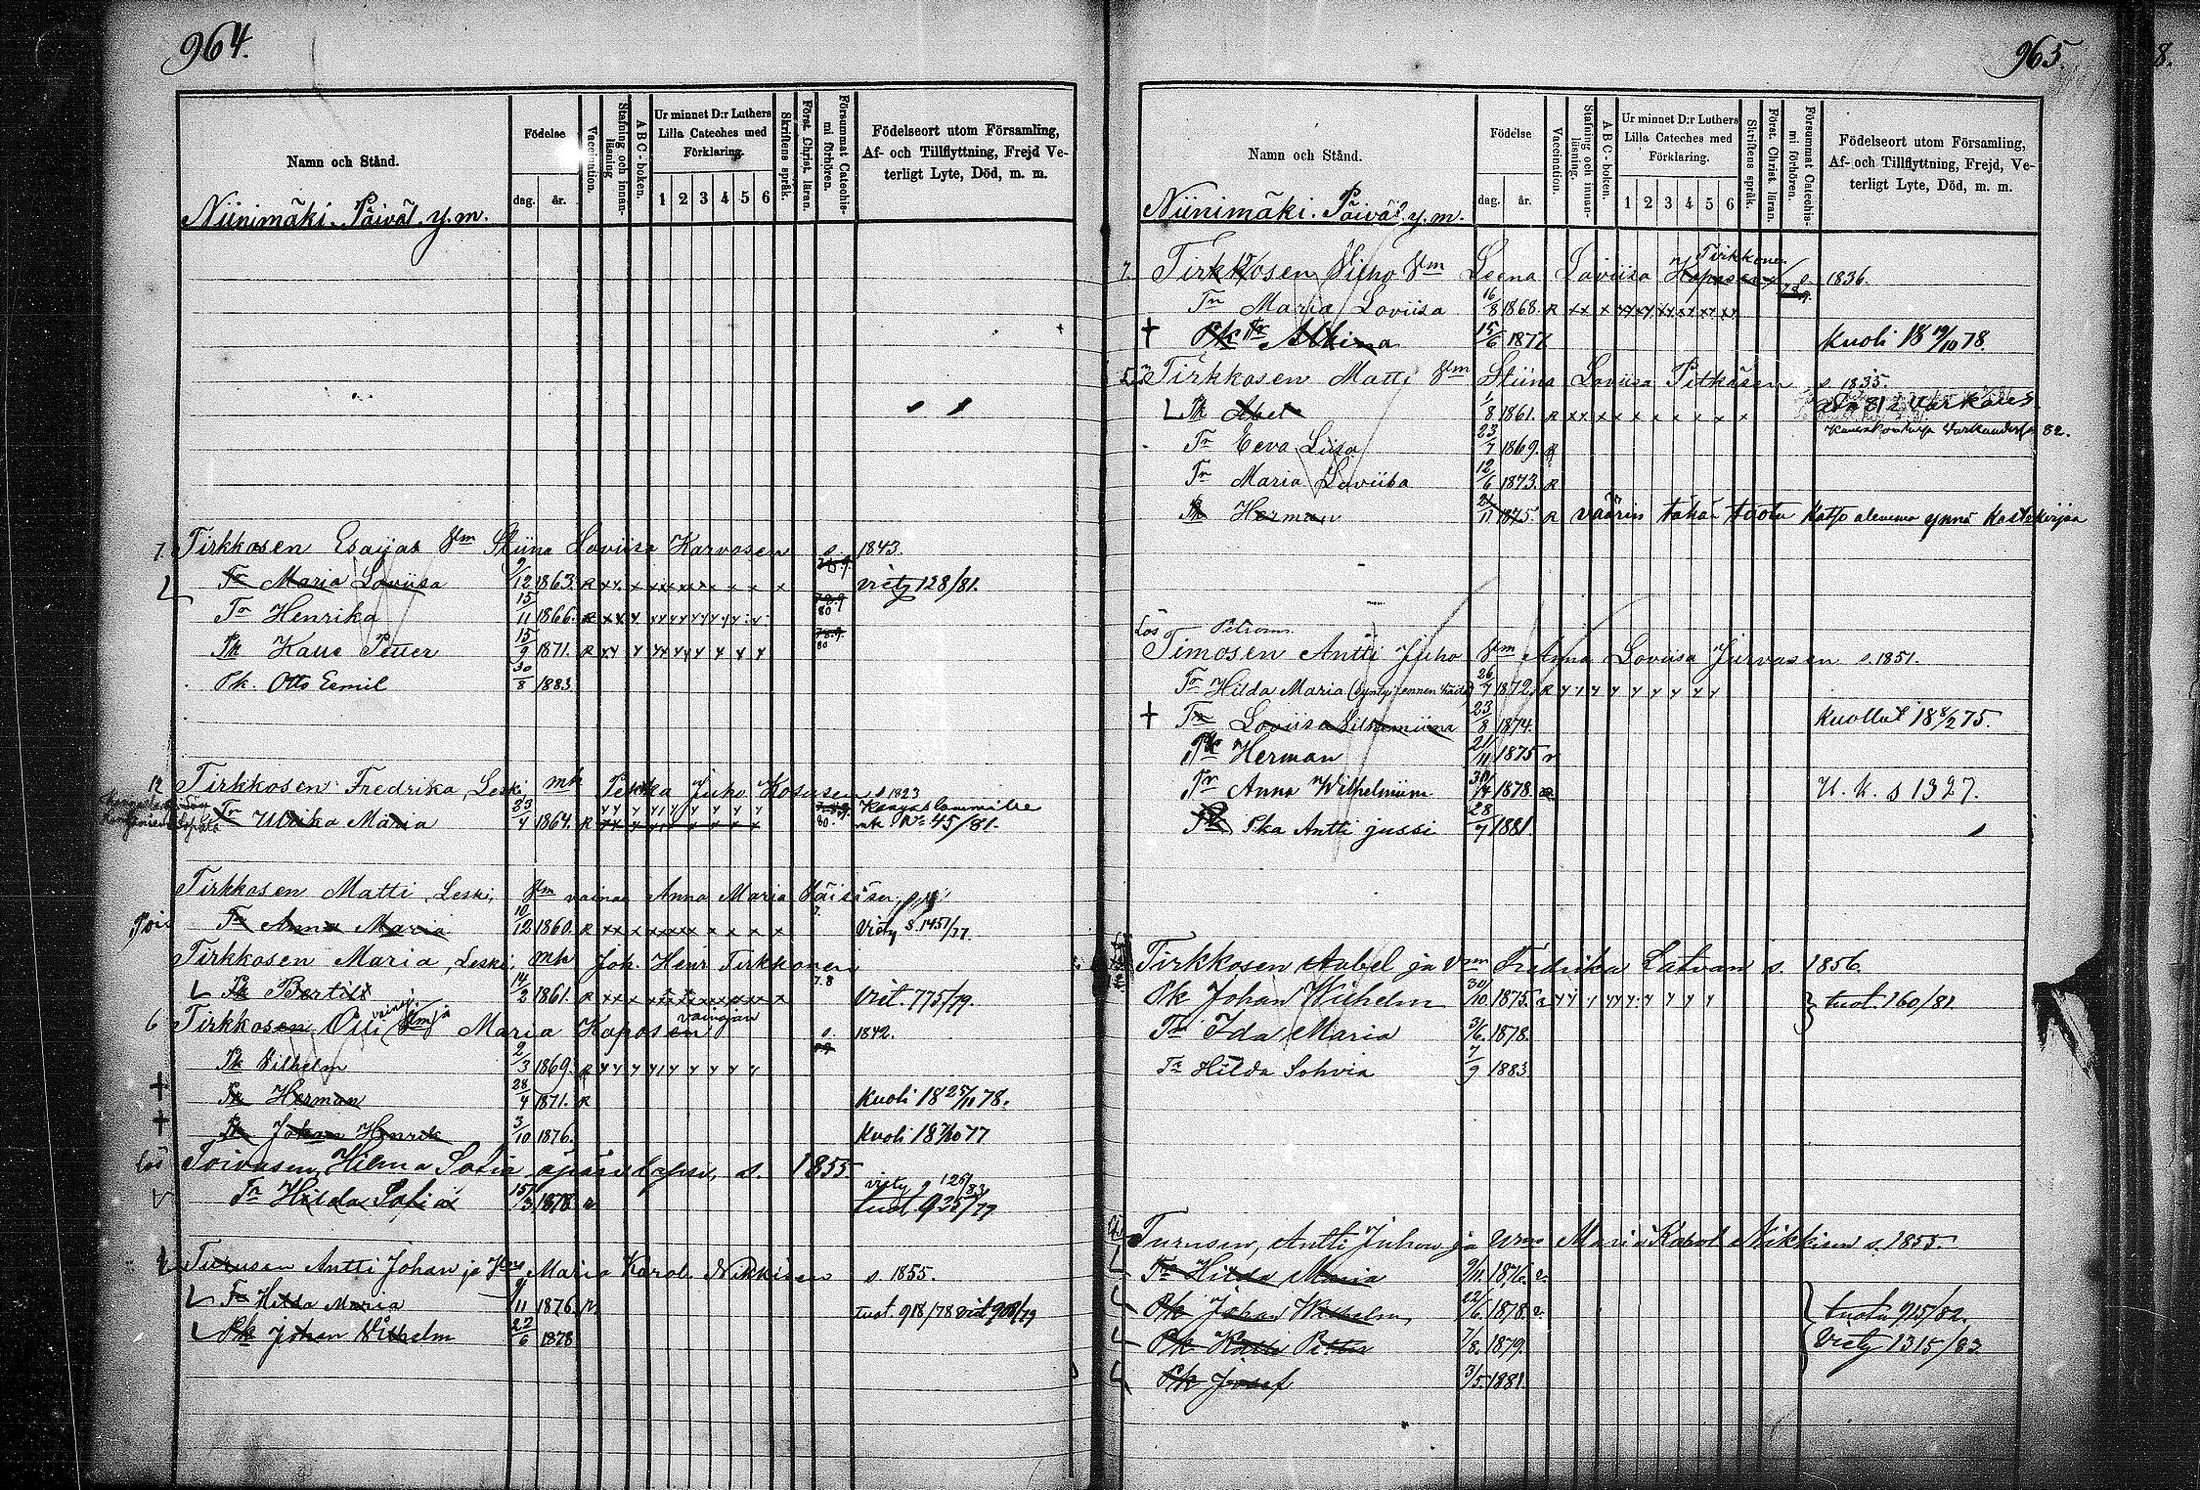 964.
Namn och Stånd.
Födelse
dag.
år.
Vaccination.
Stafning och innan-läsning
ABC-boken.
Ur minnet D:r Luthers Lilla Cateches med Förklaring.
1 2 3 4 5 6
Skriftens språk.
Först. Christ. läran.
Försummat Catechismi förhören.
Födelseort utom Församling,
Af- och Tillflyttning, Frejd Ve-
terligt Lyte, Död, m. m.
Niinimäki. Päivät. y. m.
7. Tirkkosen Esaijas Vlm Stiina Loviisa Karvosen s. 1843.
Tr Maria Loviisa 9/12 1863. R viety 128/81.
Tr Henrika 15/11 1866. R
Pk Kalle Petter 15/9 1871. R
Pk. Otto Eemil 30/8 1883.
12 Tirkkosen Fredrika, Leski, mh Pekka Juho Kososen s 1823
Tr Ulrika Maria 23/4 1864. R Kangaslammille mk No 45/81.
Tirkkosen Matti, Leski, Vlm vainaa Anna Maria Väisäsen
Pois Tr Anna Maria 10/12 1860. R Viety s. 1451/77
Tirkkosen Maria, Leski, mh Joh. Henr. Tirkkonen
Pk Bertil 14/2 1861. R viet. 775/79.
6 Tirkkosen Olli Vlm ja Maria Kaposen vainajan s. 1842.
Pk Vilhelm 2/3 1869. R
+ Pk Herman 28/4 1871. R Kuoli 18 25/11 78.
+ Pk Johan Henrik 3/10 1876. Kuoli 18 7/10 77
Lös Toivasen, Hilma Sofia äpäräslapsi, s. 1855.
Tr Hilda Sofia 15/3 1878 viety s 126/83 tuot 935/79
Turusen Antti Johan ja Vmo Maria Karol. Nikkisen s. 1855.
Tr Hilda Maria 9/11 1876. R tuot. 918/78 viet 908/79
Pk Johan Vilhelm 22/6 1878
965.
8.
Namn och Stånd.
Födelse
dag.
år.
Vaccination.
Stafning och innan-läsning.
ABC-boken.
Ur minnet D:r Luthers Lilla Cateches med Förklaring.
1 2 3 4 5 6
Skriftens språk.
Först. Christ. läran.
Försummat Catechismi förhören.
Födelseort utom Församling,
Af- och Tillflyttning, Frejd, Ve-
terligt Lyte, Död, m. m.
Niinimäki. Päivät. y. m.
7. Tirkkosen Vilho Vlm Leena Loviisa Kaposen Tirkkonen s. 1836.
Tr Maria Loviisa 16/8 1868. R
+ Tr Albiina 15/6 1877 Kuoli 18 19/10 78.
Tirkkosen Matti Vlm Stiina Loviisa Pitkäsen s. 1835.
Pk Abel 1/8 1861. R Varkaus
Tr Eeva Liisa 23/7 1869. R
Tr Maria Loviisa 12/6 1873. R
Pk Herman 21/11 1875. R väärin tähän tuotu katso alemma ynnä kastekirjaa
Lös Petrom.
Timosen Antti Juho Vlm Anna Loviisa Jurvasen s. 1851.
Tr Hilda Maria (synty. ennen häitä) 26/7 1872. R
+ Tr Loviisa Vilhelmiina 23/8 1874. Kuollut 18 8/2 75.
Pk Herman 21/11 1875 r
Tr Anna Wilhelmiin 30/4 1878. R U. K. s 1327.
Pka Antti jussi 28/7 1881.
Tirkkosen Aabel ja Vmo Fredrika Latvan s. 1856.
Pk Johan Wilhelm 30/10 1875. R tuot. 160/81.
Tr Ida Maria 3/6. 1878.
Tr Hilda Sohvia 7/9 1883
Turusen, Antti Juhon ja Vmo Maria Karol Nikkisen s. 1855.
Tr Hilda Maria 9/11. 1876. R
Pk Johan Wilhelm 22/6 1878. R tuotu 915/82.
Pk Kalle Petter 7/8. 1879. Viety 1315/83.
Pk Josef 3/5. 1881.